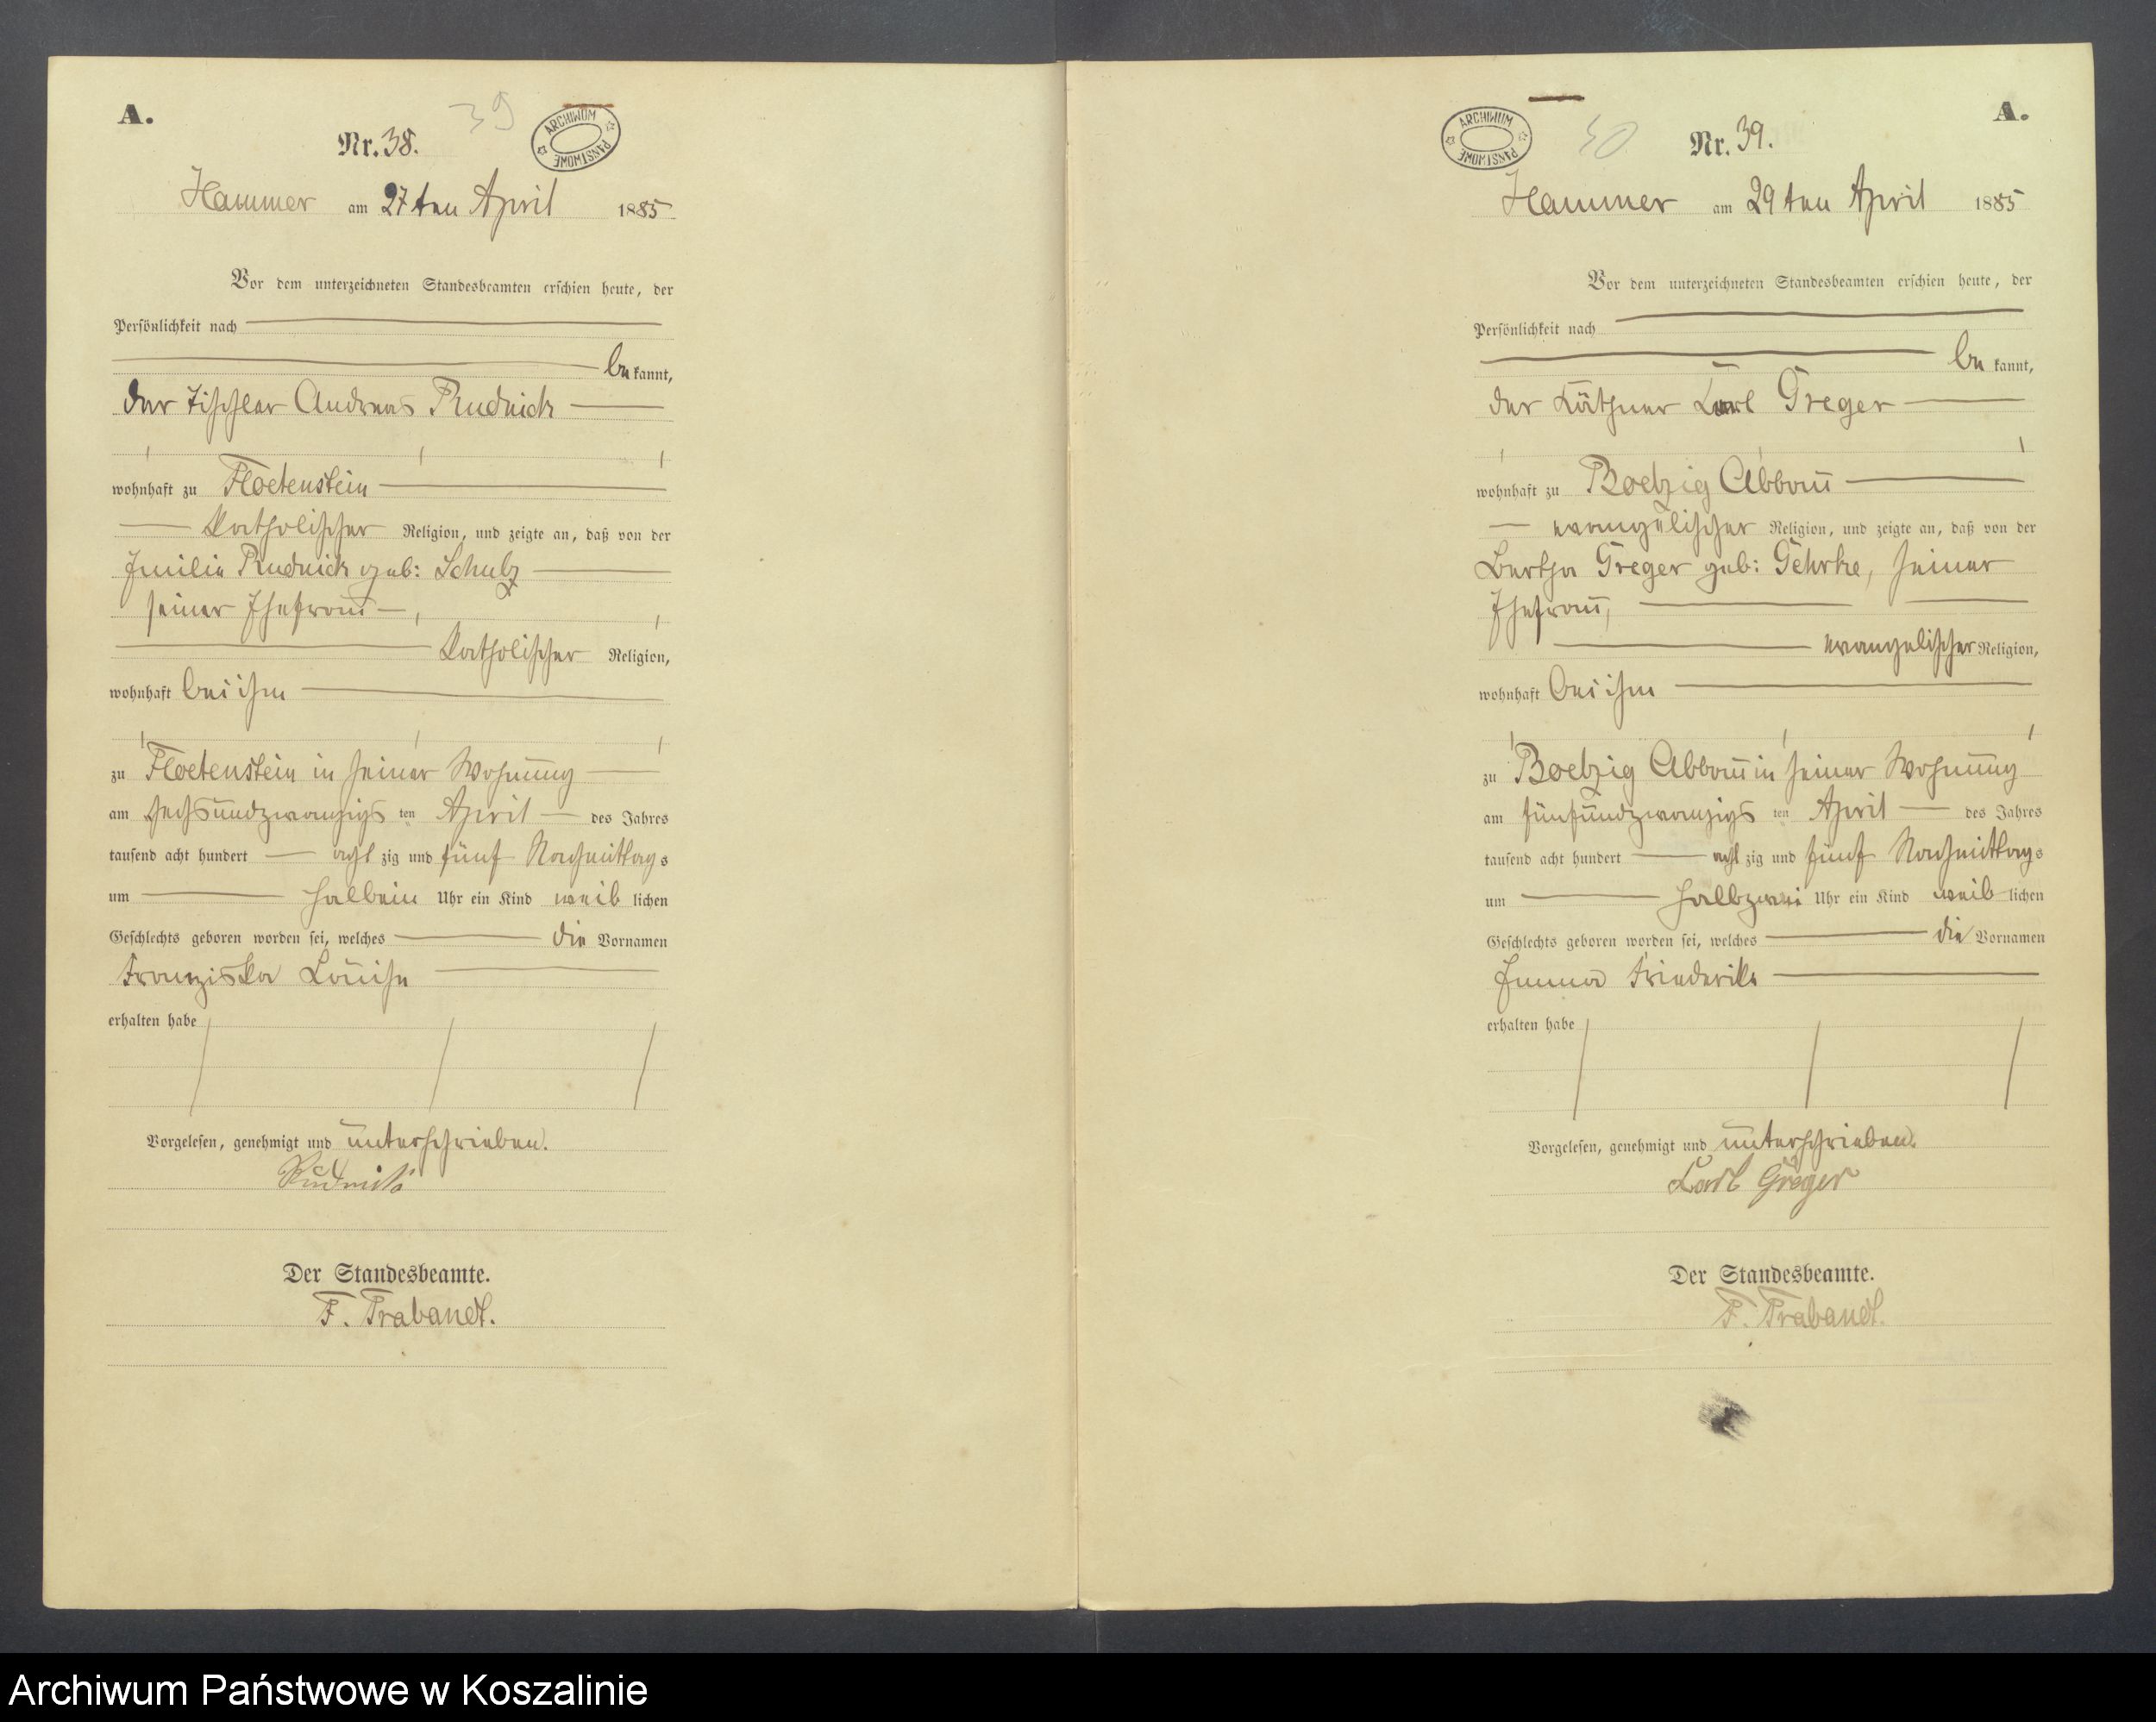 A.
39
ARCHIWUM PAŃSTWOWE
Nr. 38.
Hammer am 27ten April 1885
Vor dem unterzeichneten Standesbeamten erschien heute, der
Persönlichkeit nach
be kannt,
der Tischler Andreas Rudnick
wohnhaft zu Floetenstein
katholischer Religion, und zeigte an, daß von der
Emilie Rudnick geb: Schulz
seiner Ehefrau,
katholischer Religion,
wohnhaft bei ihm
zu Floetenstein in seiner Wohnung
am sechsundzwanzigs ten April des Jahres
tausend acht hundert acht zig und fünf Nachmittags
um halbein Uhr ein Kind weib lichen
Geschlechts geboren worden sei, welches die Vornamen
Franziska Louise
erhalten habe
Vorgelesen, genehmigt und unterschrieben.
Rudnick
Der Standesbeamte.
F. Trabandt.
A.
40
ARCHIWUM PAŃSTWOWE
Nr. 39.
Hammer am 29ten April 1885
Vor dem unterzeichneten Standesbeamten erschien heute, der
Persönlichkeit nach
be kannt,
der Käthner Carl Greger
wohnhaft zu Boetzig Abbau
evangelischer Religion, und zeigte an, daß von der
Bertha Greger geb: Gehrke, seiner
Ehefrau,
evangelischer Religion,
wohnhaft bei ihm
zu Boetzig Abbau in seiner Wohnung
am fünfundzwanzigs ten April des Jahres
tausend acht hundert acht zig und fünf Nachmittags
um halbzwei Uhr ein Kind weib lichen
Geschlechts geboren worden sei, welches die Vornamen
Emma Friederike
erhalten habe
Vorgelesen, genehmigt und unterschrieben.
Carl Greger
Der Standesbeamte.
F. Trabandt.
Archiwum Państwowe w Koszalinie